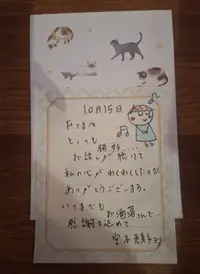 10月15日
とっても
お話しが聴けて
私の心がわくわくした
ありがとうございます。
いつまでも お洒落さんで
感謝を込めて
恵美子より